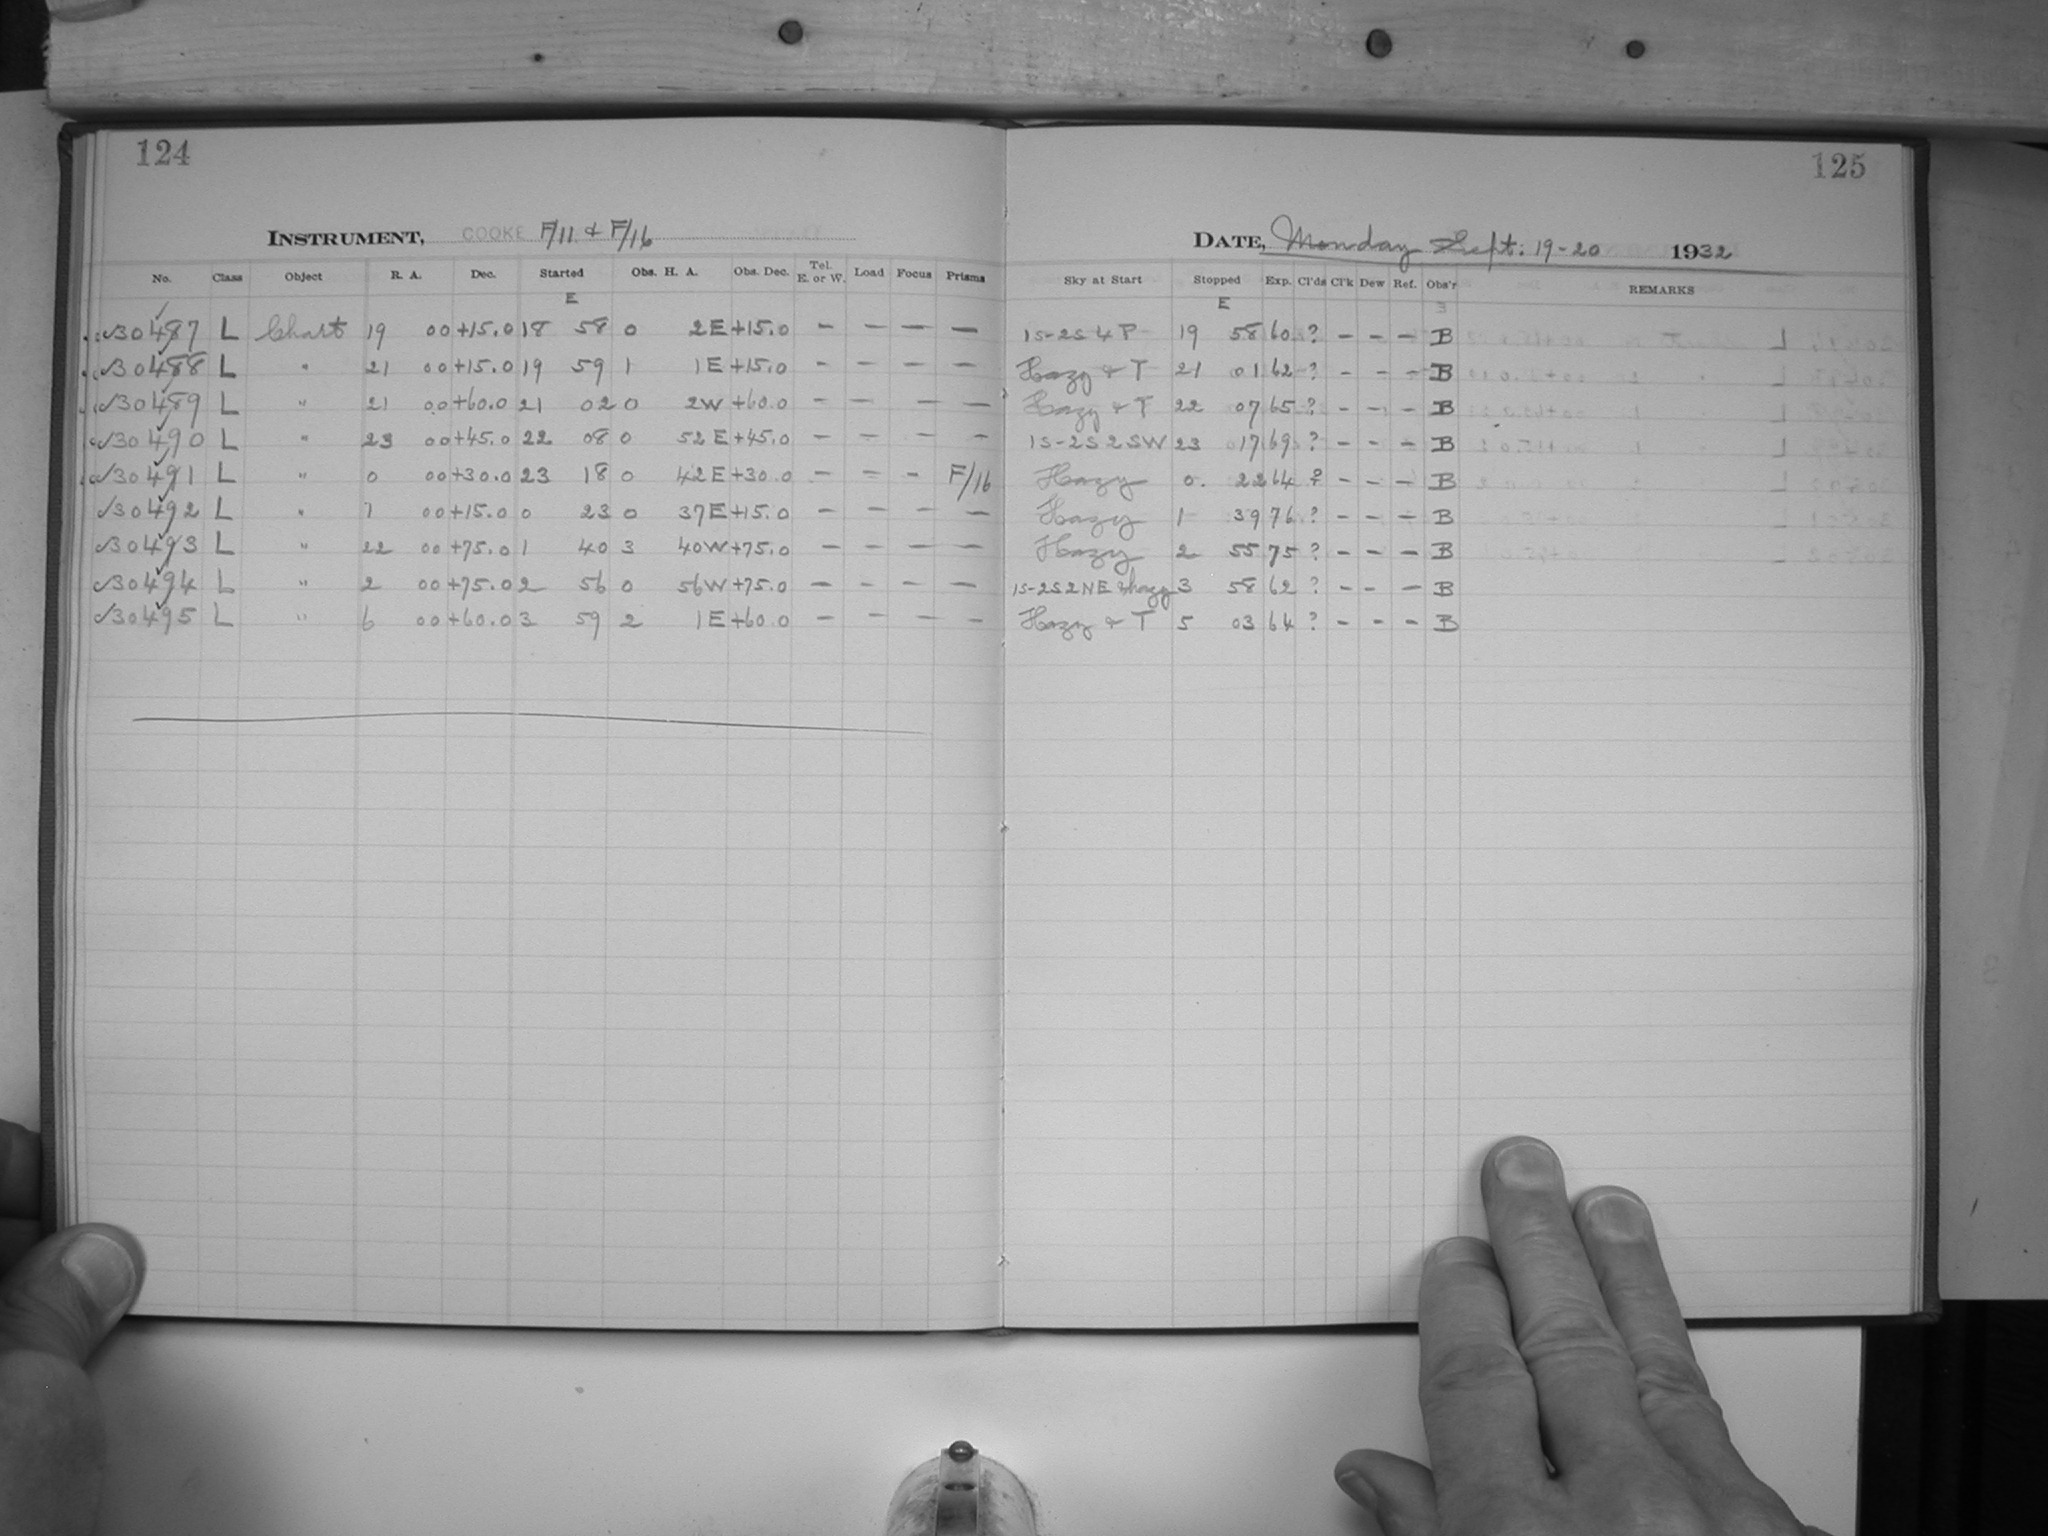 124
125
INSTRUMENT, COOKE F/11 & F/16
DATE, Monday Sept: 19-20 1932
No. Class Object R. A. Dec. Started Obs. H. A. Obs. Dec. Tel. E. or W. Load Focus Prisms Sky at Start Stopped Exp. Cl'ds Cl'k Dew Ref. Obs'r REMARKS
E E E
30487 L Chart 19 00 +15.0 18 58 0 2E +15.0 - - - - 1S-2S 4 P 19 58 60 ? - - - B
30488 L " 21 00 +15.0 19 59 1 1E +15.0 - - - - Hazy & T 21 01 62 ? - - - B
30489 L " 21 00 +60.0 21 02 0 2W +60.0 - - - - Hazy & T 22 07 65 ? - - - B
30490 L " 23 00 +45.0 22 08 0 52E +45.0 - - - - 1S-2S 2SW 23 17 69 ? - - - B
30491 L " 0 00 +30.0 23 18 0 42E +30.0 - - - F/16 Hazy 0 22 64 ? - - - B
30492 L " 1 00 +15.0 0 23 0 37E +15.0 - - - - Hazy 1 39 76 ? - - - B
30493 L " 22 00 +75.0 1 40 3 40W +75.0 - - - - Hazy 2 55 75 ? - - - B
30494 L " 2 00 +75.0 2 56 0 56W +75.0 - - - - 1S-2S 2NE & hazy 3 58 62 ? - - - B
30495 L " 6 00 +60.0 3 59 2 1E +60.0 - - - - Hazy & T 5 03 64 ? - - - B